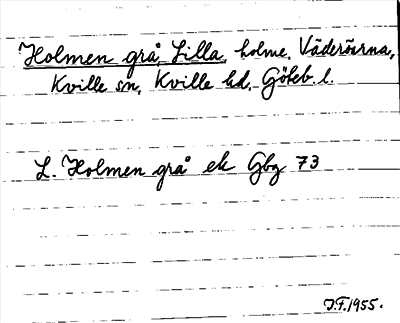 Holmen grå, Lilla, holme, Väderöarna,
Kville sn, Kville hd, Göteb. l.
L. Holmen grå ek Gbg 73
J.F. 1955.